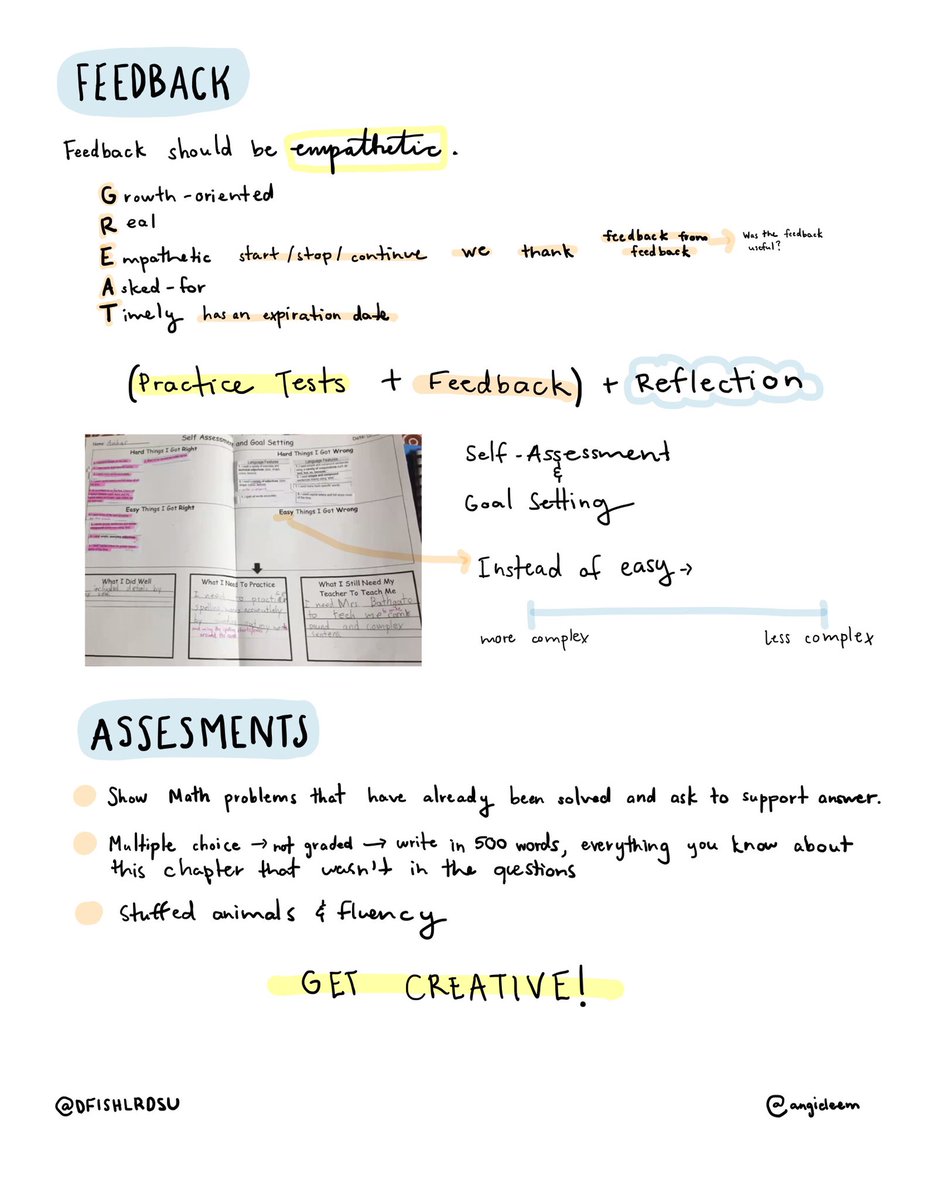 FEEDBACK
Feedback should be empathetic.
Growth-oriented
Real
Empathetic start/stop/continue we thank feedback from feedback → Was the feedback useful?
Asked-for
Timely has an expiration date
(Practice Tests + Feedback) + Reflection
Self Assessment and Goal Setting
Name
Hard Things I Got Right
Hard Things I Got Wrong
Language Features
Language Features
Easy Things I Got Right
Easy Things I Got Wrong
What I Did Well
included details by
What I Need To Practice
I need to practice
spelling words
by
around the room
What I Still Need My
Teacher To Teach Me
I need Mrs Bathgate
to tech me
pound and complex
Self-Assessment
&
Goal Setting
Instead of easy →
more complex
less complex
ASSESMENTS
Show Math problems that have already been solved and ask to support answer.
Multiple choice → not graded → write in 500 words, everything you know about
this chapter that wasn't in the questions
Stuffed animals & fluency
GET CREATIVE!
@DFISHLRDSU
@angicleem